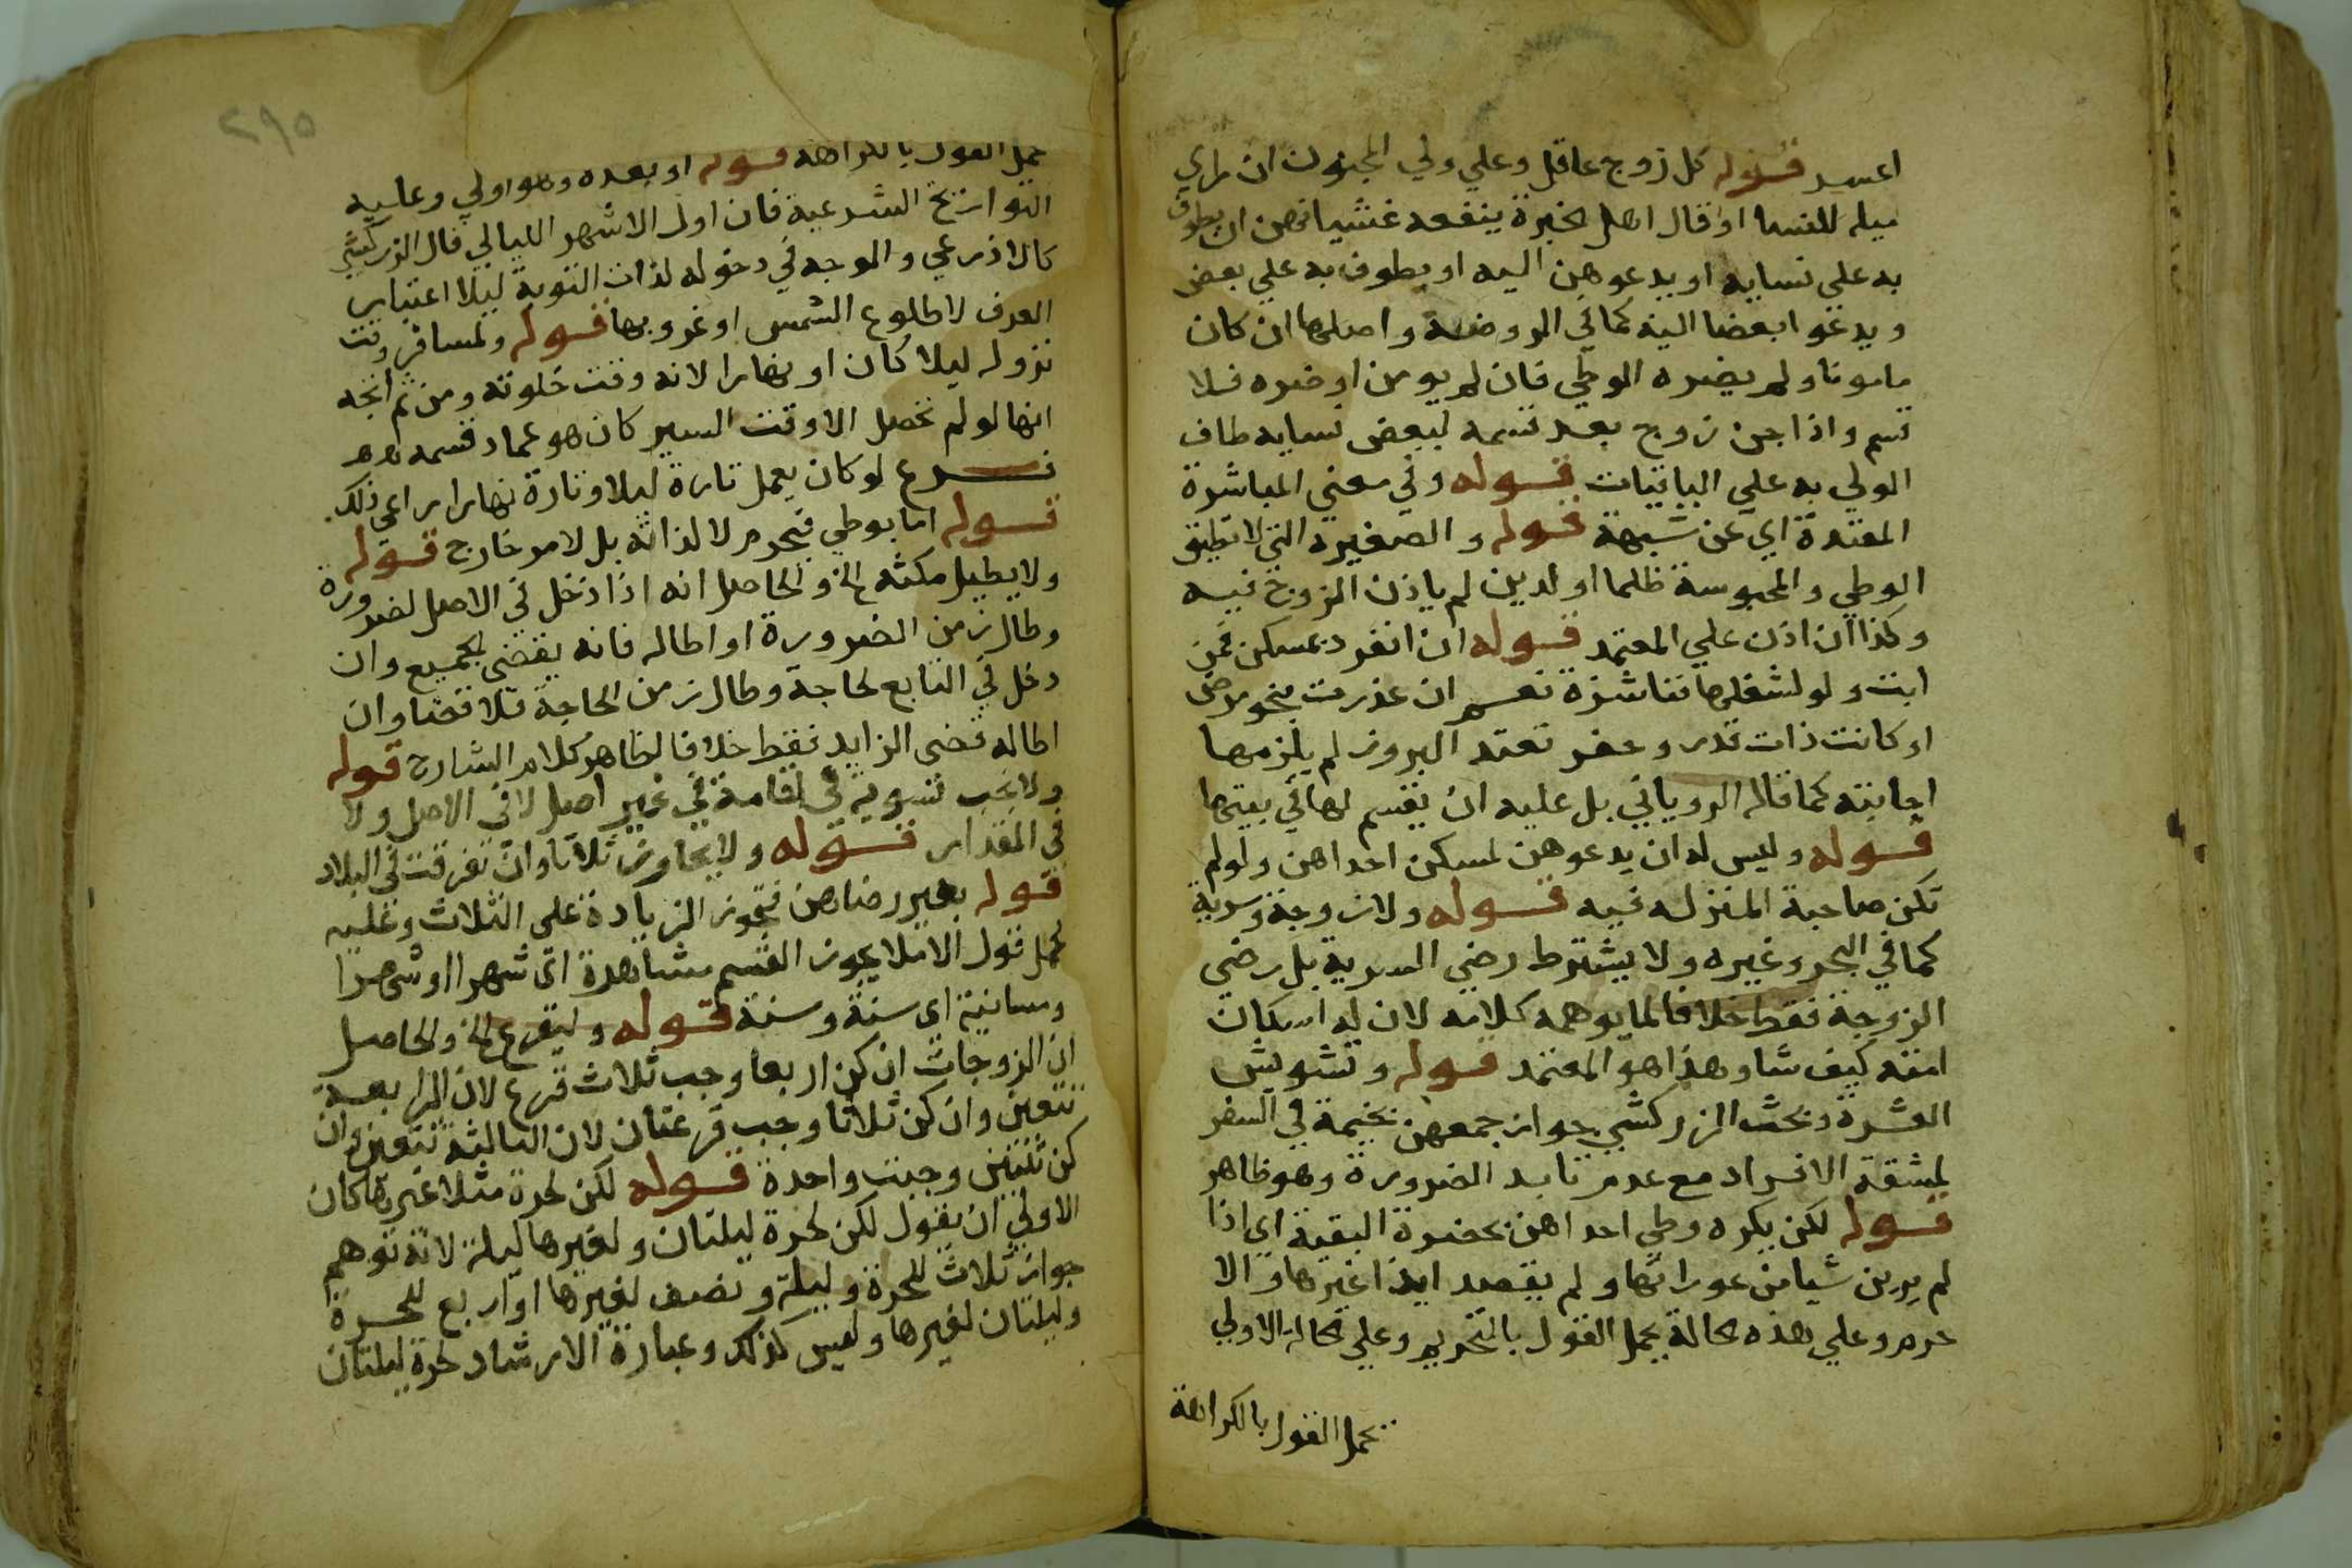 قوله كل زوج عاقل وعلي ولي المجنون ان راي
ميله للنسا او قال اهل الخبرة ينفعه غشيانهن ان يطوف
به علي نسايه او يدعوهن اليه او يطوف به علي بعض
ويدعو ابعضا اليه كما في الروضة واصلها ان كان
مامونا ولم يضره الوطي فان لم يومن او ضره فلا
قسم واذا جن زوج بعد قسمه لبعض نسايه طاف
الولي به علي الباقيات قوله وفي معني المباشرة
المعتدة اي عن شبهة قوله والصغيره التي لا تطيق
الوطي والمحبوسة ظلما او لدين لم ياذن الزوج فيه
وكذا ان اذن علي المعتمد قوله ان انفرد بمسكن فمن
ابت ولو لشغلها فناشزة نعم ان عذرت بنحو مرض
او كانت ذات قدر وخفر تعتد البروز لم يلزمها
اجابته كما قاله الروياني بل عليه ان يقسم لها في بيتها
قوله وليس له ان يدعوهن لمسكن احداهن ولو لم
تكن صاحبة المنزل فيه قوله ولا زوجة وسرية
كما في البحر وغيره ولا يشترط رضي السرية بل رضي
الزوجة فقط خلافا لما يوهمه كلامه لان له اسكان
امته كيف شا وهذا هو المعتمد قوله وتشويش
العشرة وبحث الزركشي جواز جمعهن بخيمة في السفر
لمشقة الافراد مع عدم تابد الضرورة وهو ظاهر
قوله لكن يكره وطي احداهن بحضرة البقية اي اذا
لم يرين شيا من عوراتها ولم يقصد ايذا غيرها والا
حرم وعلي هذه الحالة يحمل القول بالتحريم وعلي الحالة الاولي
تحمل القول بالكراهة
٢٩٥
تحمل القول بالكراهة قوله او بعده وهو اولي وعليه
التواريخ الشرعية فان اول الاشهر الليالي قال الزركشي
كالاذرعي والوجه في دخوله لذات النوبة ليلا اعتبار
العرف لا طلوع الشمس او غروبها قوله ولمسافر وقت
نزوله ليلا كان او نهارا لانه وقت خلوته ومن ثم اتجه
انها لو لم تحصل الا وقت السير كان هو عماد قسمه
فرع لو كان يعمل تارة ليلا وتارة نهارا راعي ذلك
قوله اما بوطي فيحرم لا لذاته بل لامر خارج قوله
ولا يطيل مكثه الخ والحاصل انه اذا دخل في الاصل لضرورة
وطال زمن الضرورة او اطاله فانه يقضي الجميع وان
دخل في التابع لحاجة وطال زمن الحاجة فلا قضا وان
اطاله قضي الزايد فقط خلافا لظاهر كلام الشارح قوله
ولا يجب تسوية في اقامة في غير اصل لا في الاصل ولا
في المقدار قوله ولا يجاوز ثلاثا وان تفرقت في البلاد
قوله بغير رضاهن فتجوز الزيادة علي الثلاث وعليه
يحمل قول الام لا يجوز القسم مشاهدة اي شهرا او شهرا
ومسانية اي سنة وسنة قوله وليقرع الخ والحاصل
ان الزوجات ان كن اربعا وجب ثلاث قرع لان الرابعة
تتعين وان كن ثلاثا وجب قرعتان لان الثالثة تتعين وان
كن ثنتين وجبت واحدة قوله لكن لحرة مثلا غيرها كان
الاولي ان يقول لكن لحرة ليلتان ولغيرها ليلة لانه توهم
جواز ثلاث للحرة وليلة ونصف لغيرها او اربع للحرة
وليلتان لغيرها وليس كذلك وعبارة الارشاد لحرة ليلتان